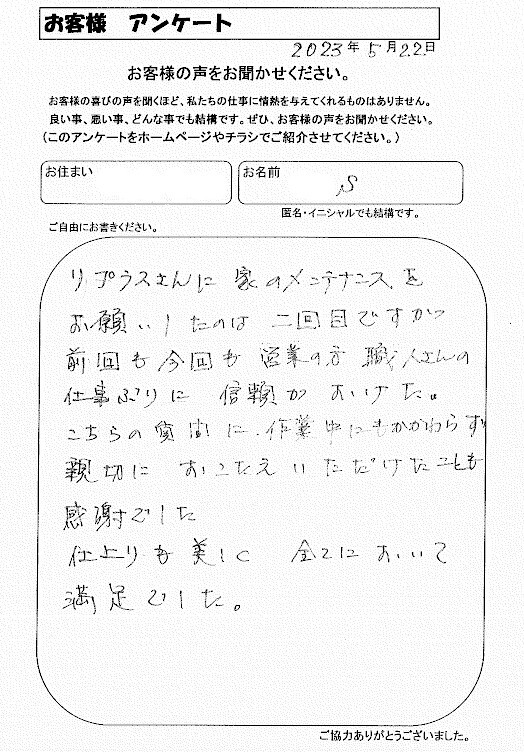 お客様 アンケート
2023年5月22日
お客様の声をお聞かせください。
お客様の喜びの声を聞くほど、私たちの仕事に情熱を与えてくれるものはありません。
良い事、悪い事、どんな事でも結構です。ぜひ、お客様の声をお聞かせください。
（このアンケートをホームページやチラシでご紹介させてください。）
お住まい
お名前
S
匿名・イニシャルでも結構です。
ご自由にお書きください。
リプラスさんに 家のメンテナンスを
お願いしたのは 二回目ですが
前回も今回も 営業の方 職人さんの
仕事ぶりに 信頼が おけた。
こちらの質問に、作業中にもかかわらず
親切に おこたえいただけたことも
感謝でした
仕上りも美しく 全てにおいて
満足でした。
ご協力ありがとうございました。